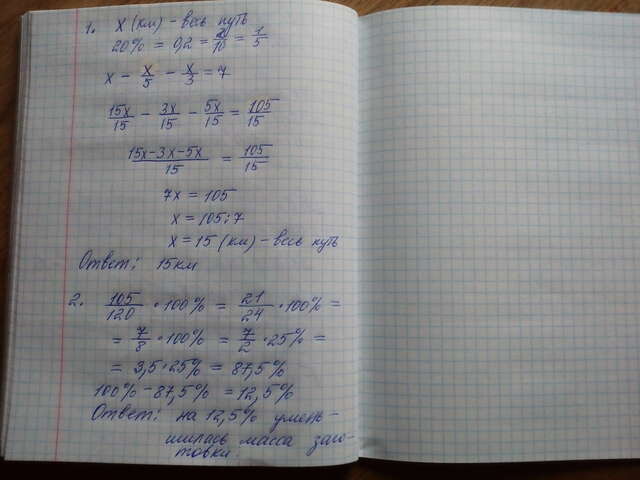 1. x (км) - весь путь
20% = 0,2 = 2/10 = 1/5
x - x/5 - x/3 = 7
15x/15 - 3x/15 - 5x/15 = 105/15
15x-3x-5x/15 = 105/15
7x = 105
x = 105:7
x = 15 (км) - весь путь
Ответ: 15км
2. 105/120 · 100% = 21/24 · 100% =
= 7/8 · 100% = 7/2 · 25% =
= 3,5 · 25% = 87,5%
100% - 87,5% = 12,5%
Ответ: на 12,5% умень-
шилась масса заго-
товки.